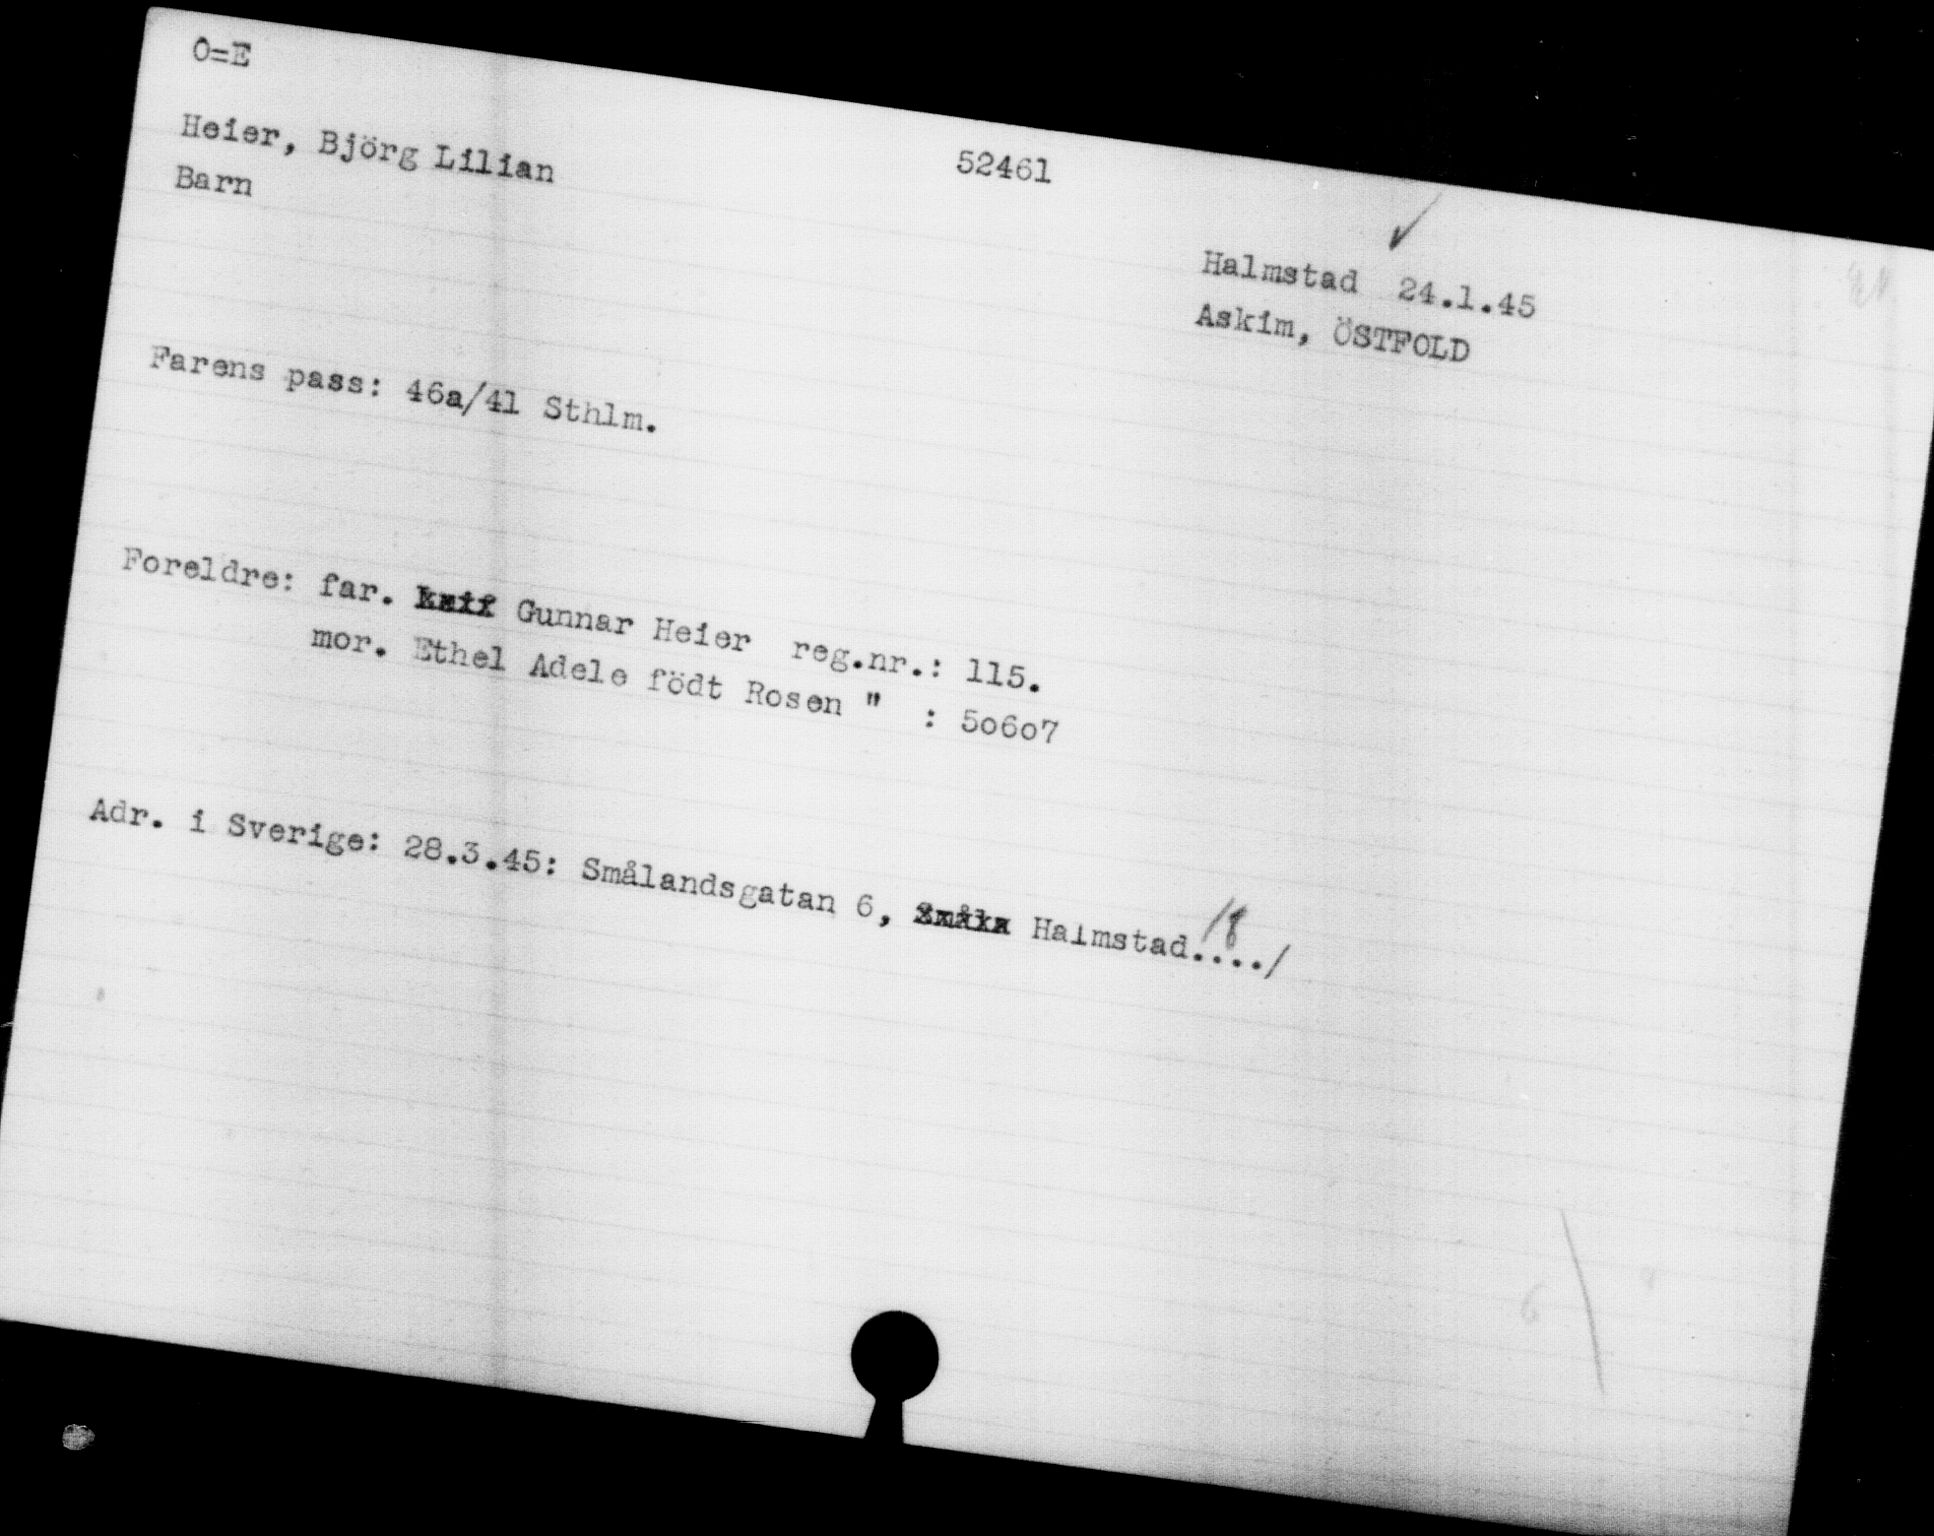 O=E
Heier, Björg Lilian 52461
Barn
Halmstad 24.1.45
Askim, ÖSTFOLD
Farens pass: 46a/41 Sthlm.
Foreldre: far. Gunnar Heier reg.nr.: 115.
mor. Ethel Adele födt Rosen " : 5o6o7
Adr. i Sverige: 28.3.45: Smålandsgatan 6, Halmstad..../
/8
6